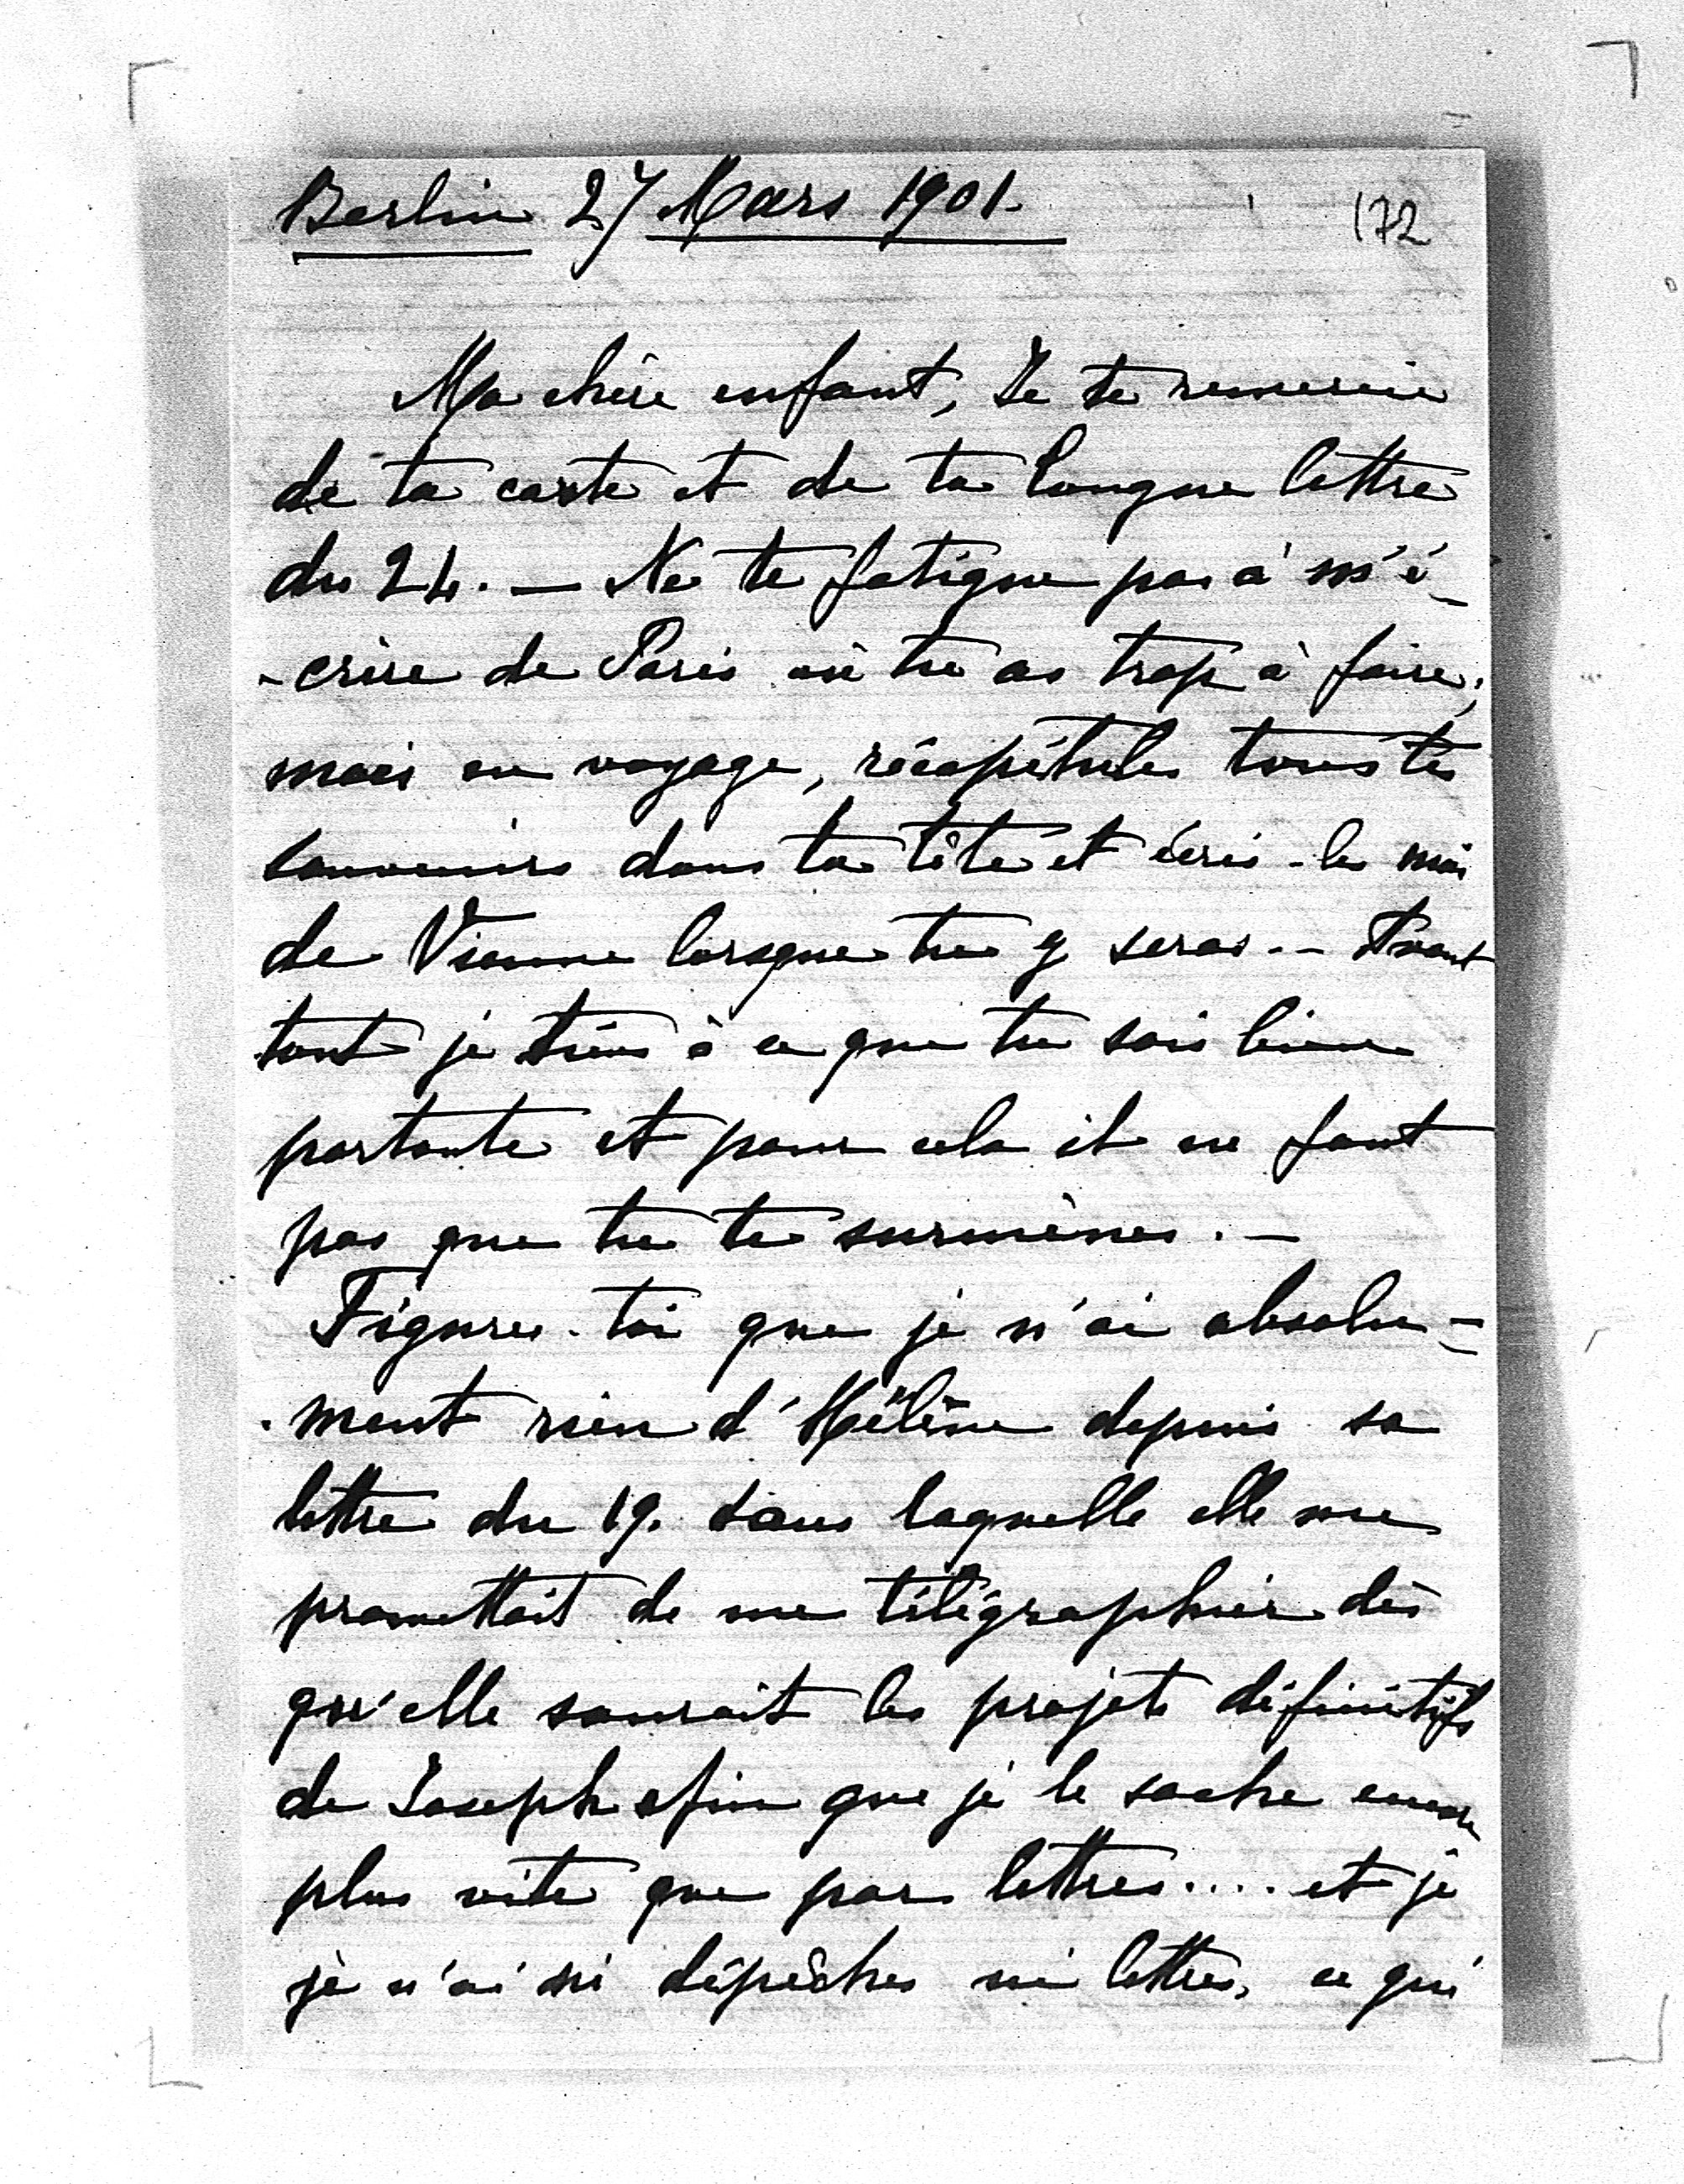 Berlin 27 Mars 1901.
172
Ma chère enfant, Je te remercie
de ta carte et de ta longue lettre
du 24. — Ne te fatigue pas à m'é-
-crire de Paris où tu as trop à faire;
mais en voyage, récapitules tous tes
souvenirs dans ta tête et écris-les moi
de Vienne lorsque tu y seras. — Avant
tout je tiens à ce que tu sois bien
portante et pour cela il ne faut
pas que tu te surmènes. —
Figures-toi que je n'ai absolu=
-ment rien d'Hélène depuis sa
lettre du 19. dans laquelle elle me
promettait de me télégraphier dès
qu'elle saurait les projets définitifs
de Joseph afin que je le sache encore
plus vite que par lettres.... et je
je n'ai ni dépêches ni lettres, ce qui